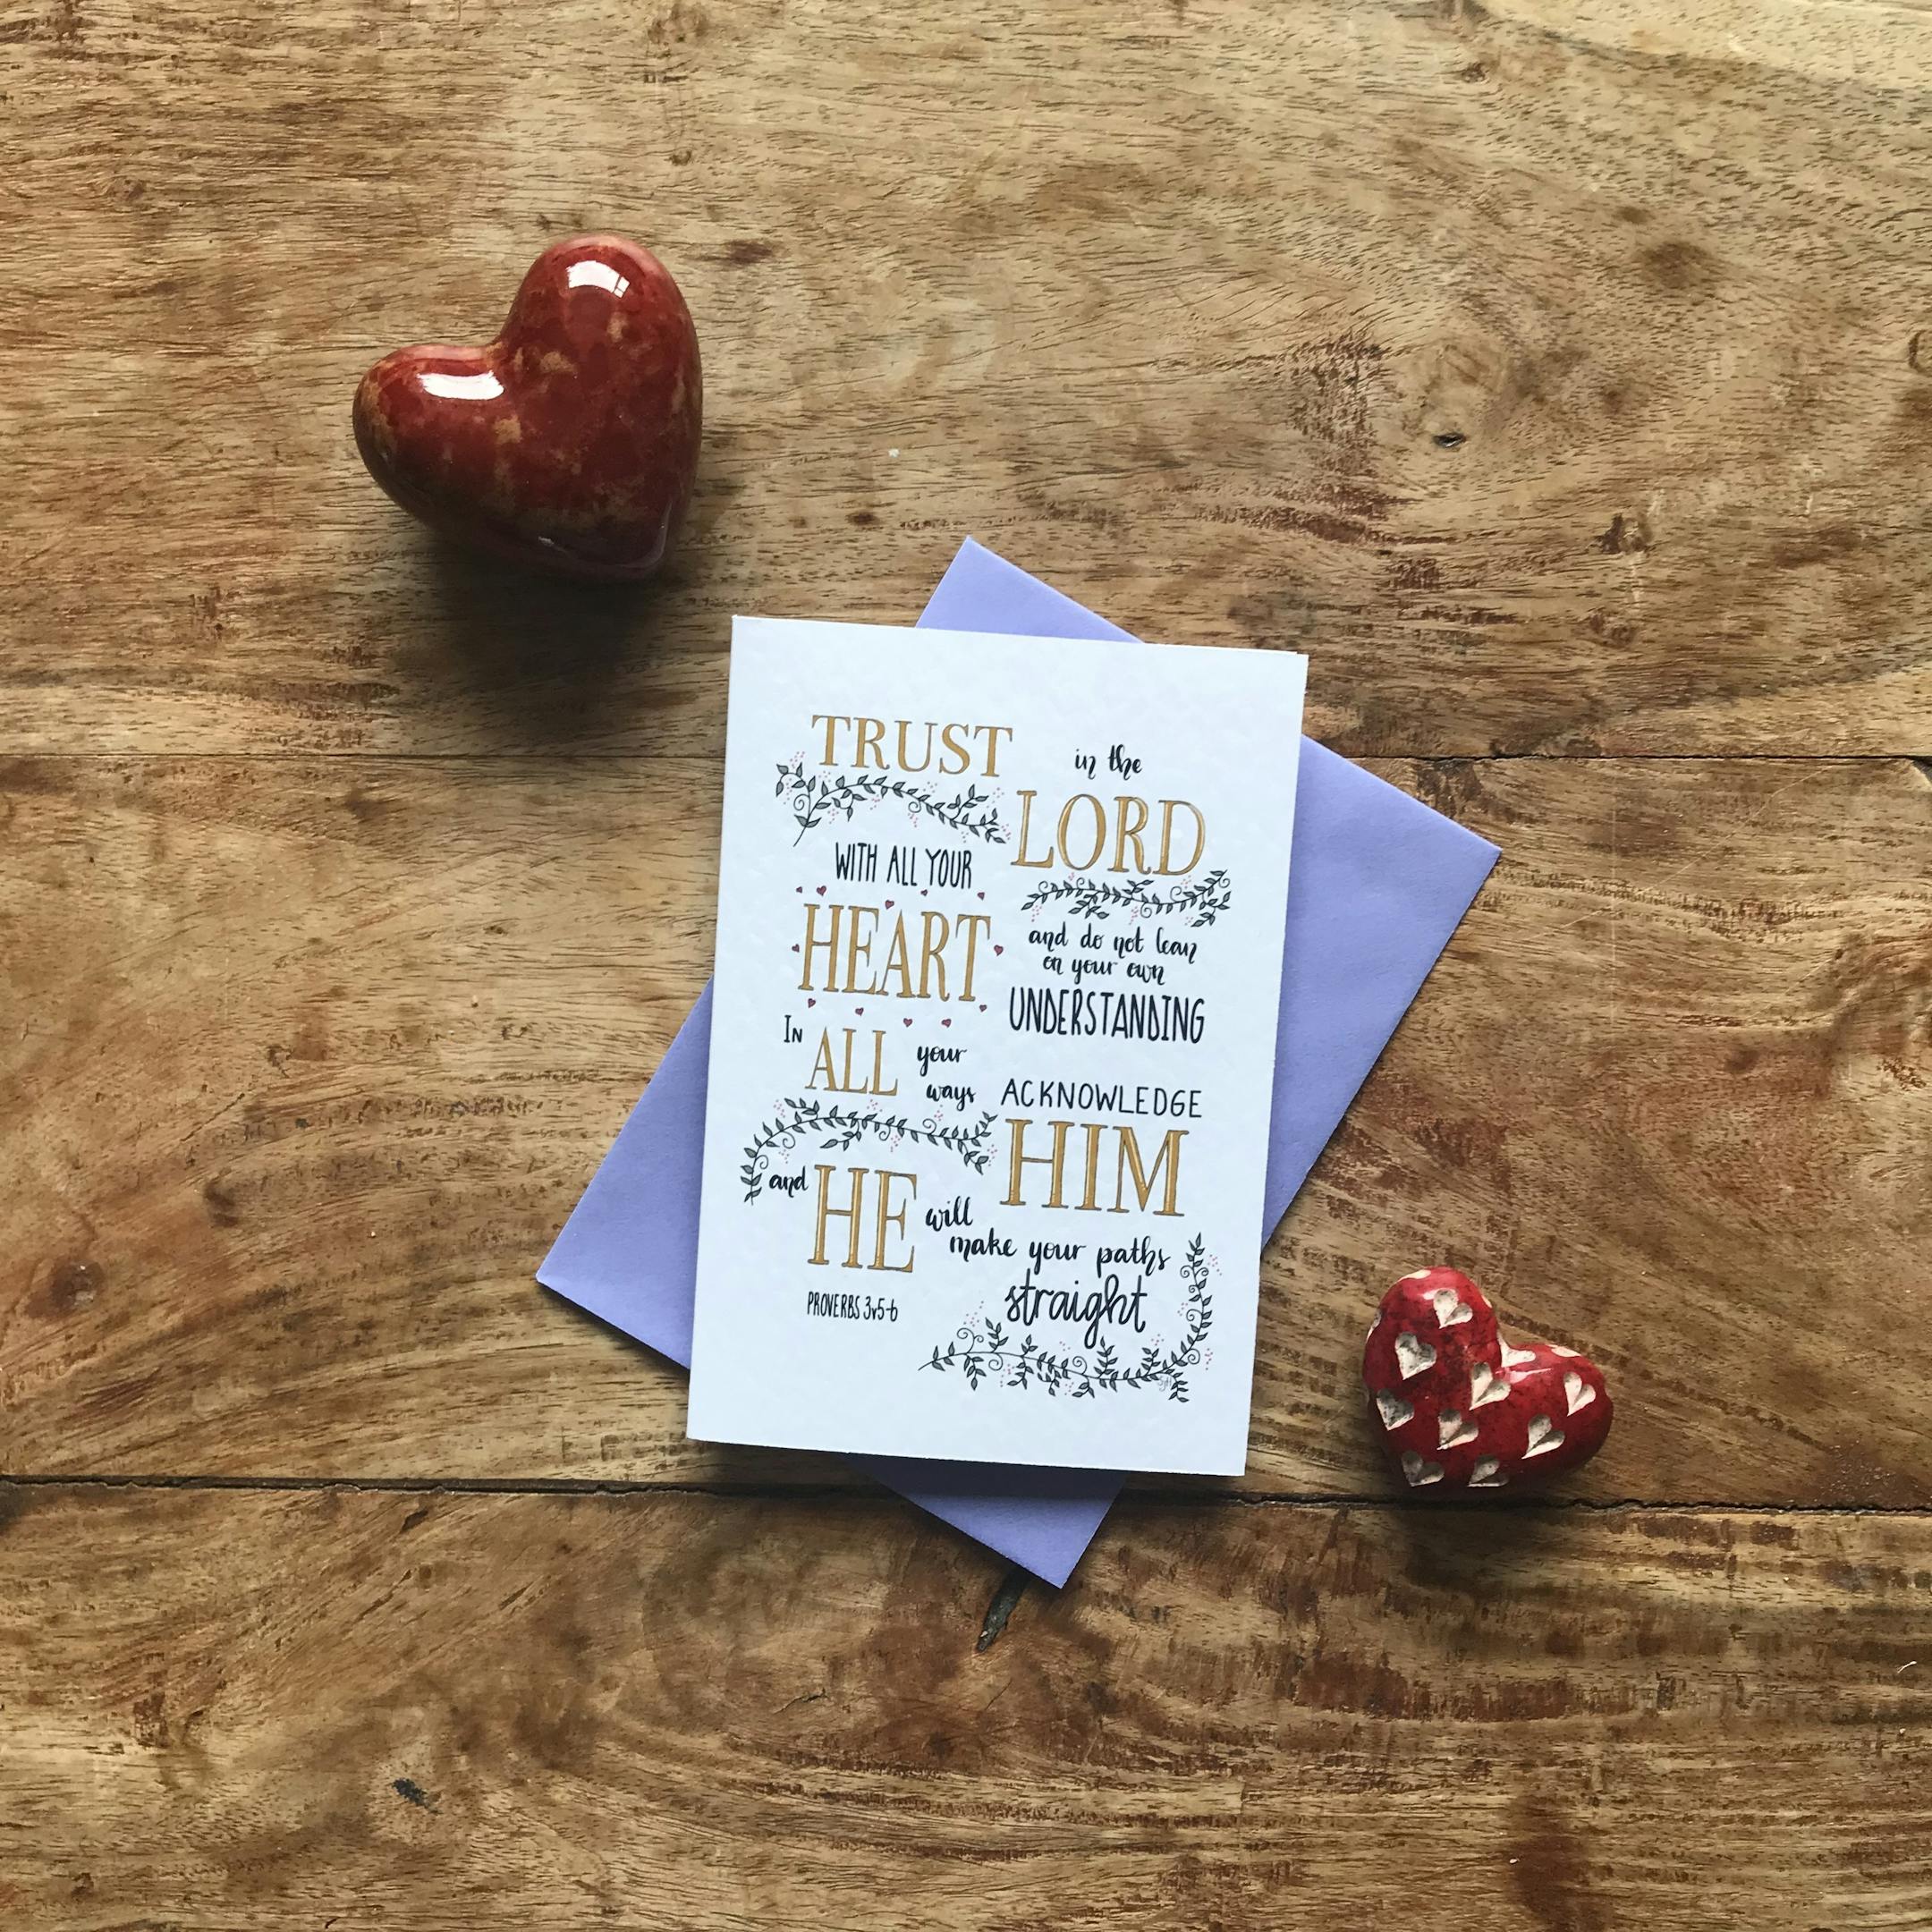 TRUST in the
LORD
WITH ALL YOUR
HEART
and do not lean
on your own
UNDERSTANDING
In ALL your
ways ACKNOWLEDGE
HIM
and HE will
make your paths
straight
PROVERBS 3v5-6